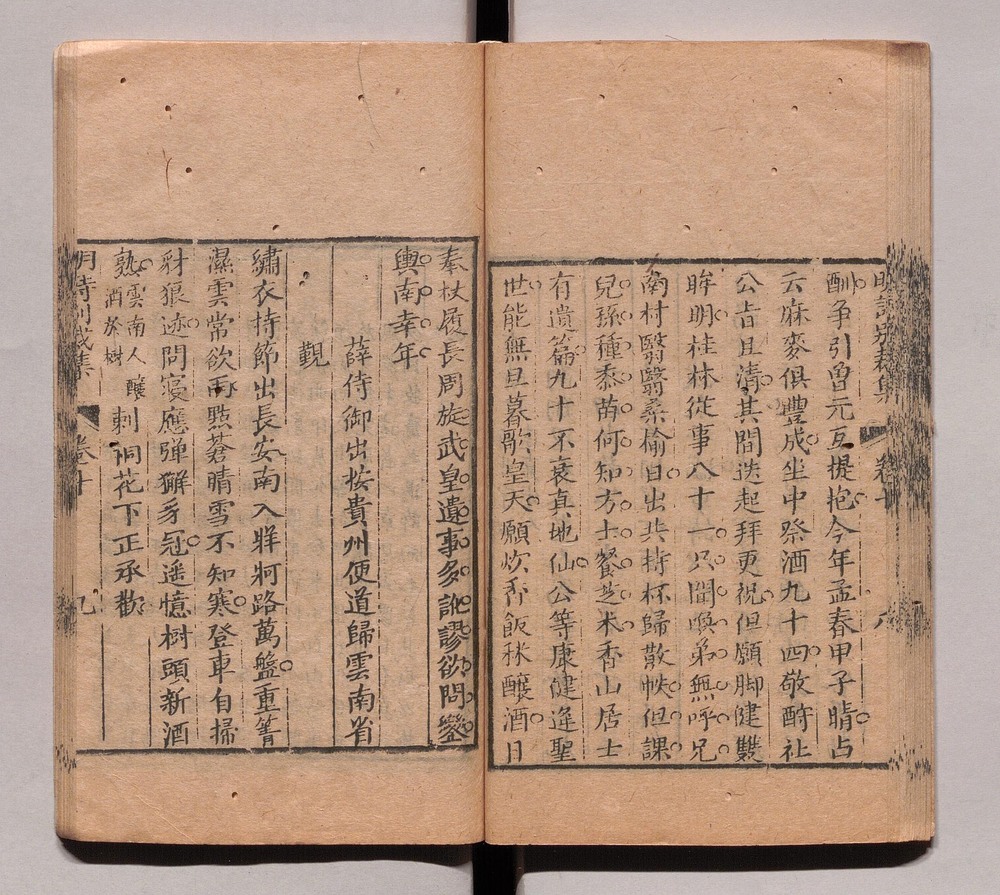 明詩別裁集 卷十 八
酬争引曾元互提抱今年孟春甲子晴占
云麻麥俱豐成坐中祭酒九十四敬酹社
公旨且清其間迭起拜更祝但願脚健雙
眸明桂林從事八十一只聞喚弟無呼兄
南村翳翳桑榆日出共持杯歸散帙但課
兒孫種黍苗何知方士餐芝术香山居士
有遺篇九十不衰真地仙公等康健逢聖
世能無旦暮歌皇天願炊香飯秫釀酒日
奉杖履長周旋武皇遺事多訛謬欲問鑾
輿南幸年
薛侍御出按貴州便道歸雲南省
覲
繡衣持節出長安南入牂牁路萬盤重箐
濕雲常欲雨點蒼晴雪不知寒登車自掃
豺狼迹問寢應彈獬豸冠遥憶樹頭新酒
熟雲南人釀酒於樹刺桐花下正承歡
明詩別裁集 卷十 九